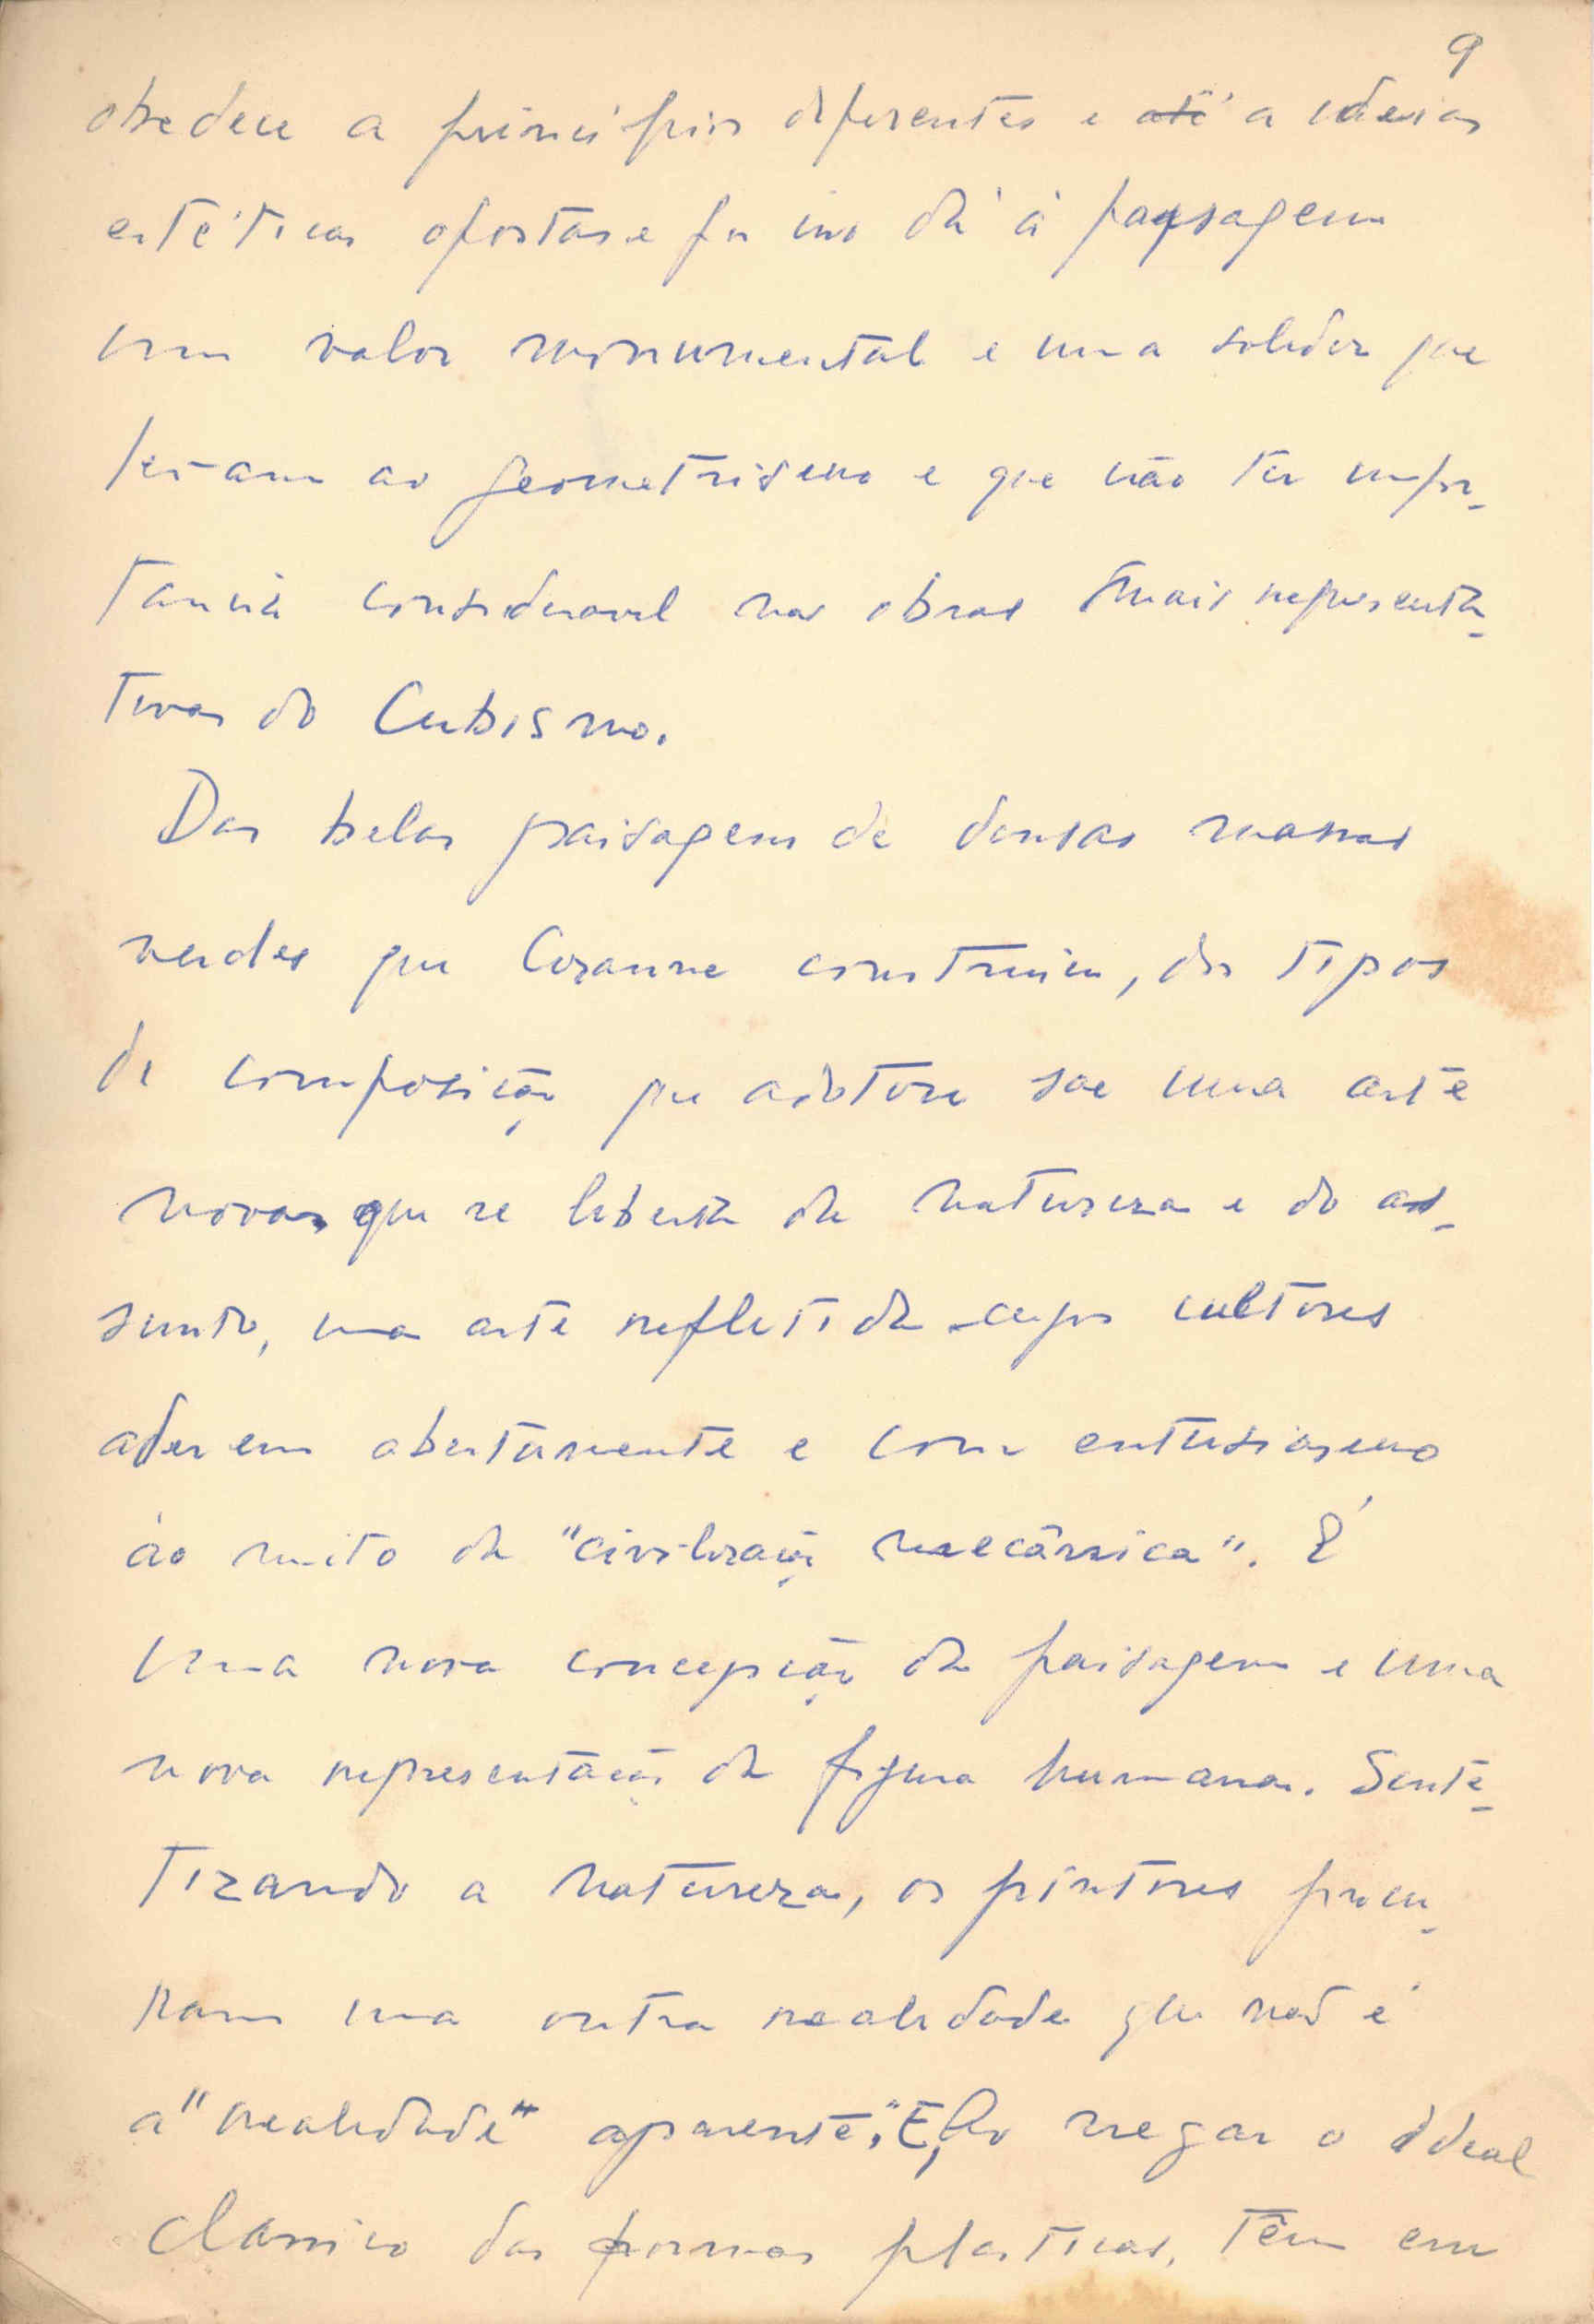 9
obedece a princípios diferentes e até a ideias
estéticas opostas e por isso dá à paysagem
um valor monumental e uma solidez que
levam ao geometrismo e que vão ter impor-
tancia consideravel nas obras mais representa-
tivas do Cubismo.
Das belas paisagens de densas massas
verdes que Cezanne construiu, dos tipos
de composição que adotou sae uma arte
nova que se liberta da natureza e do as-
sunto, uma arte refletida cujos cultores
aderem abertamente e com entusiasmo
ao mito da "civilização mecânica". É
uma nova concepção da paisagem e uma
nova representação da figura humana. Sinte-
tizando a natureza, os pintores procu-
ram uma outra realidade que não é
a "realidade" aparente". E, Ao negar o ideal
classico das formas plasticas, têm em